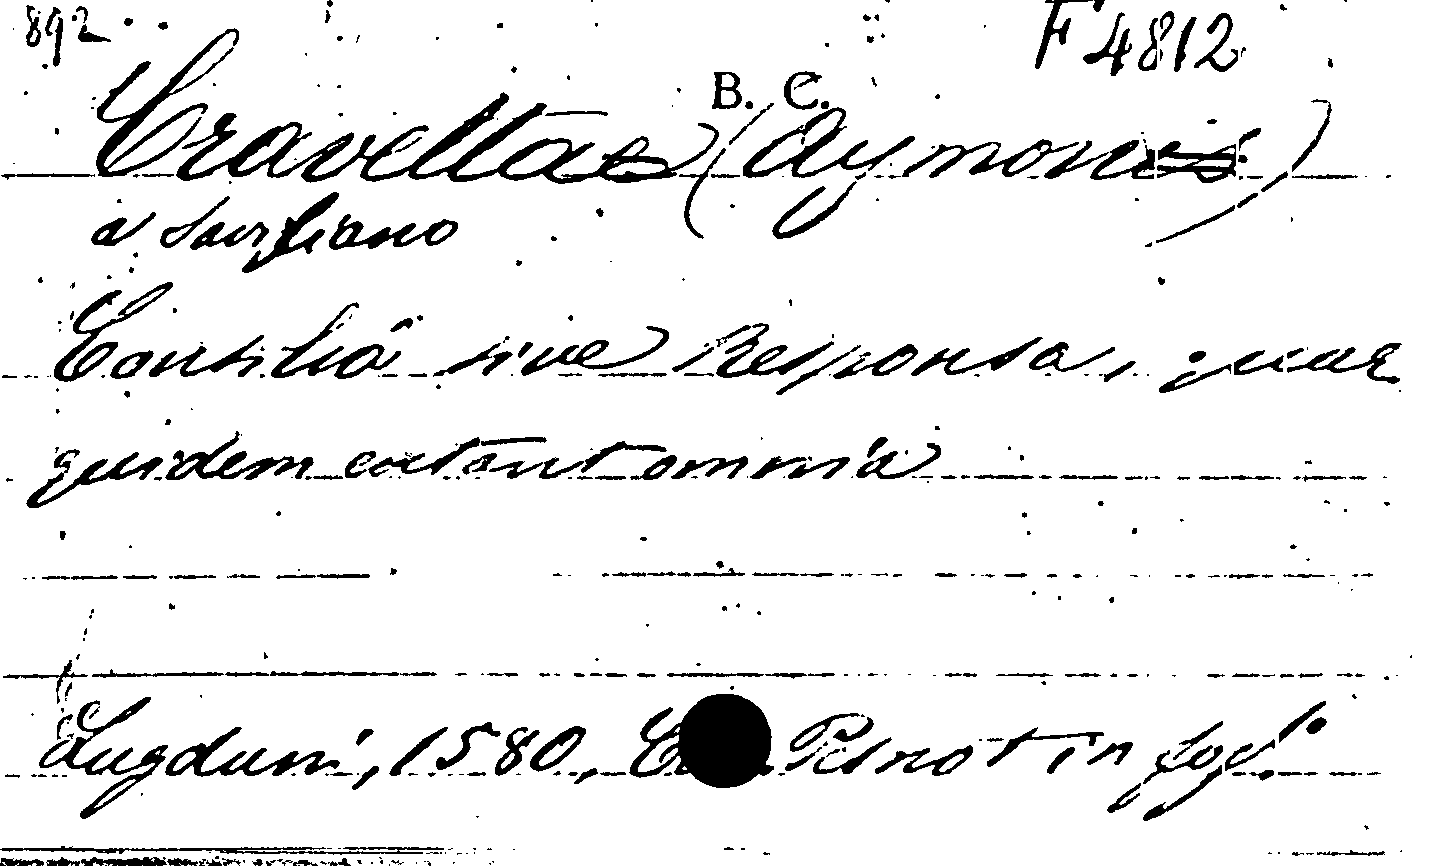 892
F 4812
B. C.
Cravettas (Aymonis)
a Savigliano
Consilia sive Responsa, quae
quidem extant omnia
Lugduni, 1580, in fog.